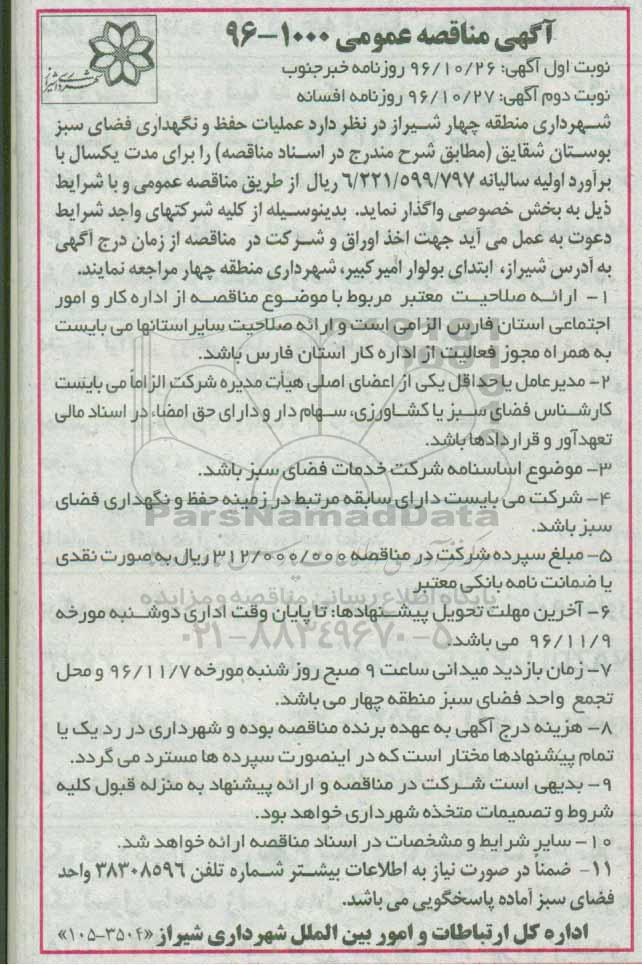 آگهی مناقصه عمومی ۱۰۰۰-۹۶
نوبت اول آگهی: ۹۶/۱۰/۲۶ روزنامه خبرجنوب
نوبت دوم آگهی: ۹۶/۱۰/۲۷ روزنامه افسانه
شهرداری شیراز
شهرداری منطقه چهار شیراز در نظر دارد عملیات حفظ و نگهداری فضای سبز
بوستان شقایق (مطابق شرح مندرج در اسناد مناقصه) را برای مدت یکسال با
برآورد اولیه سالیانه ۶/۲۲۱/۵۹۹/۷۹۷ ریال از طریق مناقصه عمومی و با شرایط
ذیل به بخش خصوصی واگذار نماید. بدینوسیله از کلیه شرکتهای واجد شرایط
دعوت به عمل می آید جهت اخذ اوراق و شرکت در مناقصه از زمان درج آگهی
به آدرس شیراز، ابتدای بولوار امیرکبیر، شهرداری منطقه چهار مراجعه نمایند.
۱- ارائه صلاحیت معتبر مربوط با موضوع مناقصه از اداره کار و امور
اجتماعی استان فارس الزامی است و ارائه صلاحیت سایر استانها می بایست
به همراه مجوز فعالیت از اداره کار استان فارس باشد.
۲- مدیرعامل یا حداقل یکی از اعضای اصلی هیأت مدیره شرکت الزاماً می بایست
کارشناس فضای سبز یا کشاورزی، سهام دار و دارای حق امضاء در اسناد مالی
تعهدآور و قراردادها باشد.
۳- موضوع اساسنامه شرکت خدمات فضای سبز باشد.
۴- شرکت می بایست دارای سابقه مرتبط در زمینه حفظ و نگهداری فضای
سبز باشد.
ParsNamadData
۵- مبلغ سپرده شرکت در مناقصه ۳۱۲/۰۰۰/۰۰۰ ریال به صورت نقدی
یا ضمانت نامه بانکی معتبر
پایگاه اطلاع رسانی مناقصه و مزایده
۶- آخرین مهلت تحویل پیشنهادها: تا پایان وقت اداری دوشنبه مورخه
۹۶/۱۱/۹ می باشد.
۰۲۱-۸۸۳۴۹۶۷۰-۵
۷- زمان بازدید میدانی ساعت ۹ صبح روز شنبه مورخه ۹۶/۱۱/۷ و محل
تجمع واحد فضای سبز منطقه چهار می باشد.
۸- هزینه درج آگهی به عهده برنده مناقصه بوده و شهرداری در رد یک یا
تمام پیشنهادها مختار است که در اینصورت سپرده ها مسترد می گردد.
۹- بدیهی است شرکت در مناقصه و ارائه پیشنهاد به منزله قبول کلیه
شروط و تصمیمات متخذه شهرداری خواهد بود.
۱۰- سایر شرایط و مشخصات در اسناد مناقصه ارائه خواهد شد.
۱۱- ضمناً در صورت نیاز به اطلاعات بیشتر شماره تلفن ۳۸۳۰۸۵۹۶ واحد
فضای سبز آماده پاسخگویی می باشد.
اداره کل ارتباطات و امور بین الملل شهرداری شیراز «۳۵۰۴-۱۰۵»